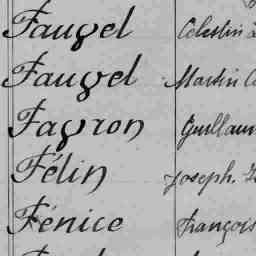 Faugel Célestin
Faugel Martin
Fayron Guillaum
Félin Joseph.
Fénice François